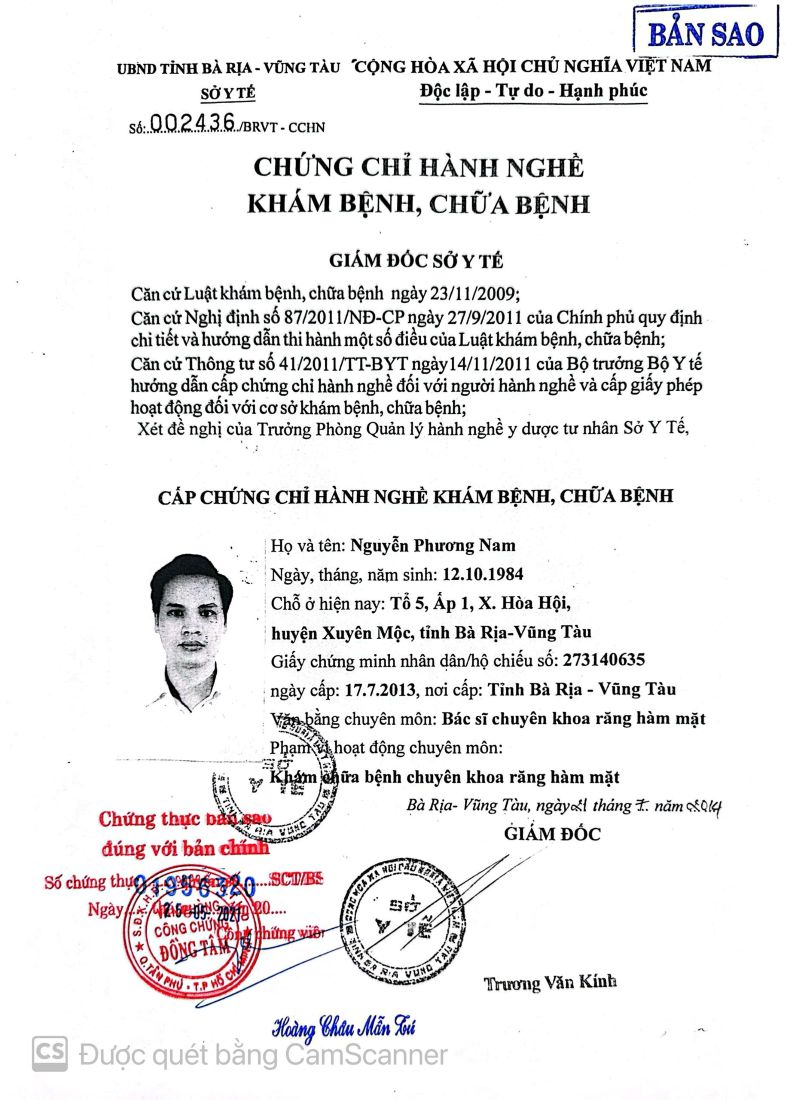 BẢN SAO
UBND TỈNH BÀ RỊA - VŨNG TÀU CỘNG HÒA XÃ HỘI CHỦ NGHĨA VIỆT NAM
SỞ Y TẾ Độc lập - Tự do - Hạnh phúc
Số: 002436 /BRVT - CCHN
CHỨNG CHỈ HÀNH NGHỀ
KHÁM BỆNH, CHỮA BỆNH
GIÁM ĐỐC SỞ Y TẾ
Căn cứ Luật khám bệnh, chữa bệnh ngày 23/11/2009;
Căn cứ Nghị định số 87/2011/NĐ-CP ngày 27/9/2011 của Chính phủ quy định
chi tiết và hướng dẫn thi hành một số điều của Luật khám bệnh, chữa bệnh;
Căn cứ Thông tư số 41/2011/TT-BYT ngày14/11/2011 của Bộ trưởng Bộ Y tế
hướng dẫn cấp chứng chỉ hành nghề đối với người hành nghề và cấp giấy phép
hoạt động đối với cơ sở khám bệnh, chữa bệnh;
Xét đề nghị của Trưởng Phòng Quản lý hành nghề y dược tư nhân Sở Y Tế,
CẤP CHỨNG CHỈ HÀNH NGHỀ KHÁM BỆNH, CHỮA BỆNH
Họ và tên: Nguyễn Phương Nam
Ngày, tháng, năm sinh: 12.10.1984
Chỗ ở hiện nay: Tổ 5, Ấp 1, X. Hòa Hội,
huyện Xuyên Mộc, tỉnh Bà Rịa-Vũng Tàu
Giấy chứng minh nhân dân/hộ chiếu số: 273140635
ngày cấp: 17.7.2013, nơi cấp: Tỉnh Bà Rịa - Vũng Tàu
Văn bằng chuyên môn: Bác sĩ chuyên khoa răng hàm mặt
Phạm vi hoạt động chuyên môn:
Khám chữa bệnh chuyên khoa răng hàm mặt
Bà Rịa- Vũng Tàu, ngày 21 tháng 7 năm 2014
GIÁM ĐỐC
SỞ
Y TẾ
TỈNH BÀ RỊA VŨNG TÀU
Chứng thực bản sao
đúng với bản chính
Số chứng thực SCT/BS
Ngày 20....
Công chứng viên
CÔNG CHỨNG
ĐỒNG TÂM
Q.TÂN PHÚ - T.P HỒ CHÍ MINH
SỞ
Y TẾ
TỈNH BÀ RỊA VŨNG TÀU
Trương Văn Kính
Hoàng Châu Mẫn Tú
CS Được quét bằng CamScanner